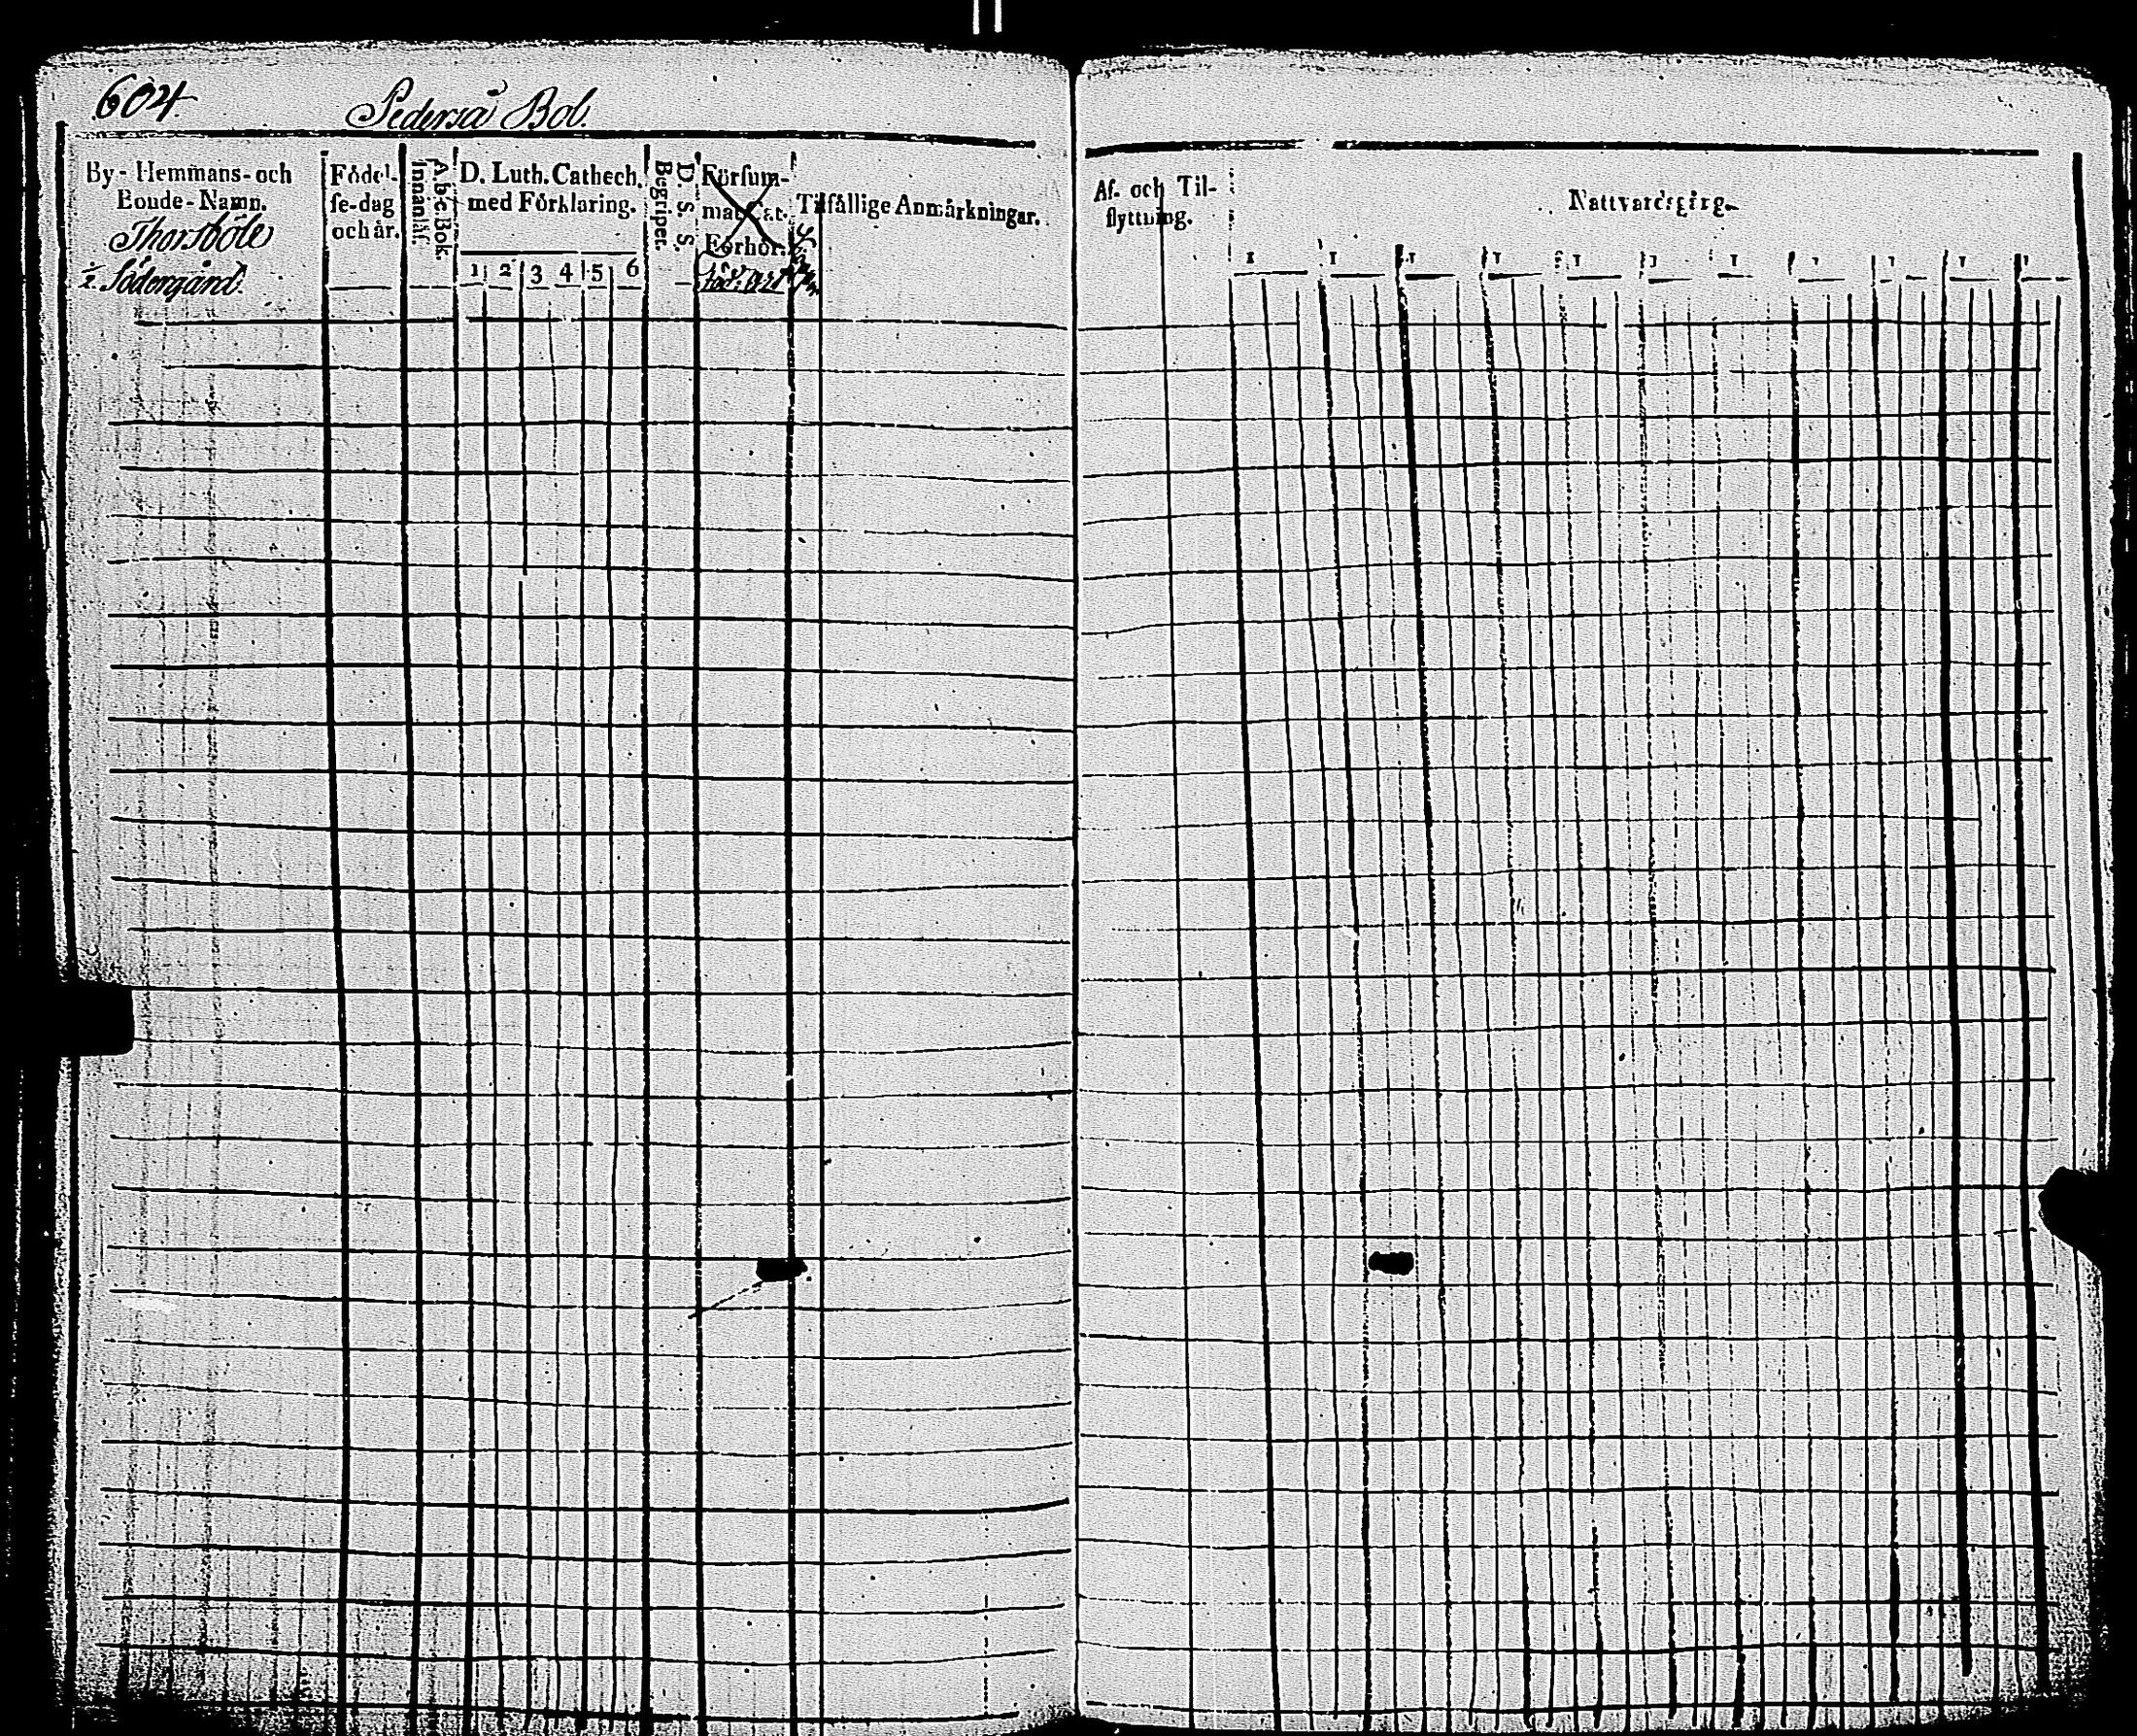 604.
Pederså Bol.
By- Hemmans- och
Bonde-Namn.
Thorsböle
½ Södergård
Födel-
se-dag
och år.
A b c Bok.
Innanläs.
D. Luth. Cathech.
med Förklaring.
1 2 3 4 5 6
D. S. S.
Begriper.
Försum-
mat Cat.
Förhör.
Tilfällige Anmärkningar.
Af. och Til-
flyttning.
Nattvardsgång.